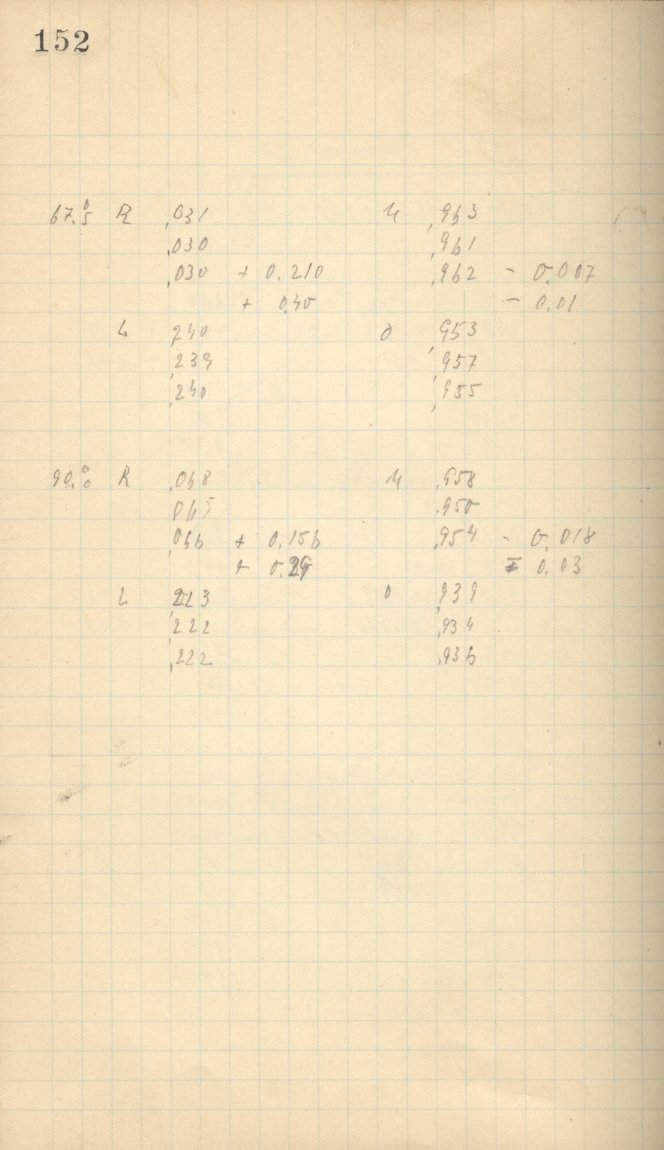 152
67.°5 R ,031 U ,963
,030 ,961
,030 + 0.210 ,962 - 0.007
+ 0.40 - 0.01
L ,240 O ,953
,239 ,957
,240 ,955
90.°0 R ,068 U ,958
,065 ,950
,066 + 0.156 ,954 - 0.018
+ 0.29 - 0.03
L ,223 O ,939
,222 ,934
,222 ,936